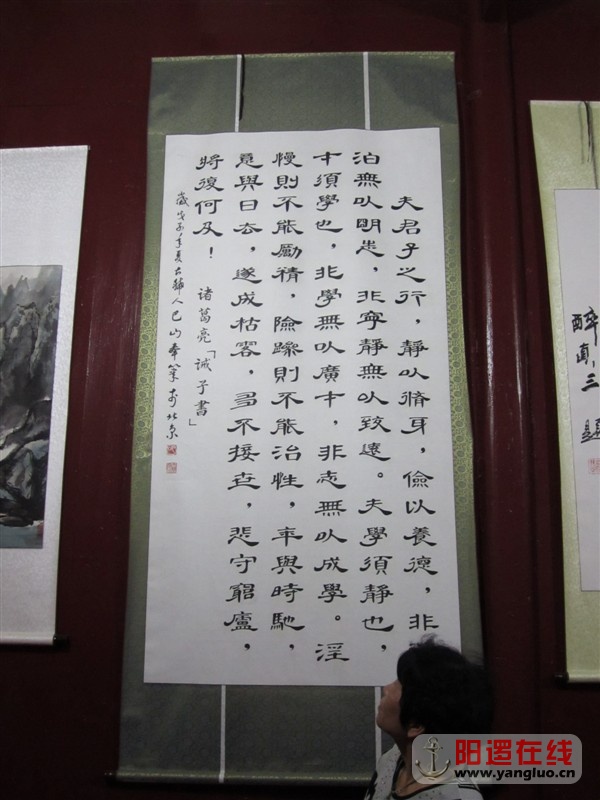 夫君子之行，靜以脩身，儉以養德，非
泊無以明志，非寧靜無以致遠。夫學須静也，
才須學也，非學無以廣才，非志無以成學。淫
慢則不能勵精，險躁則不能治性，年與時馳，
意與日去，遂成枯落，多不接世，悲守窮廬，
將復何及！
诸葛亮「诫子書」
歲戊子年夏古稀人巴山奉筆於北京
阳逻在线
www.yangluo.cn